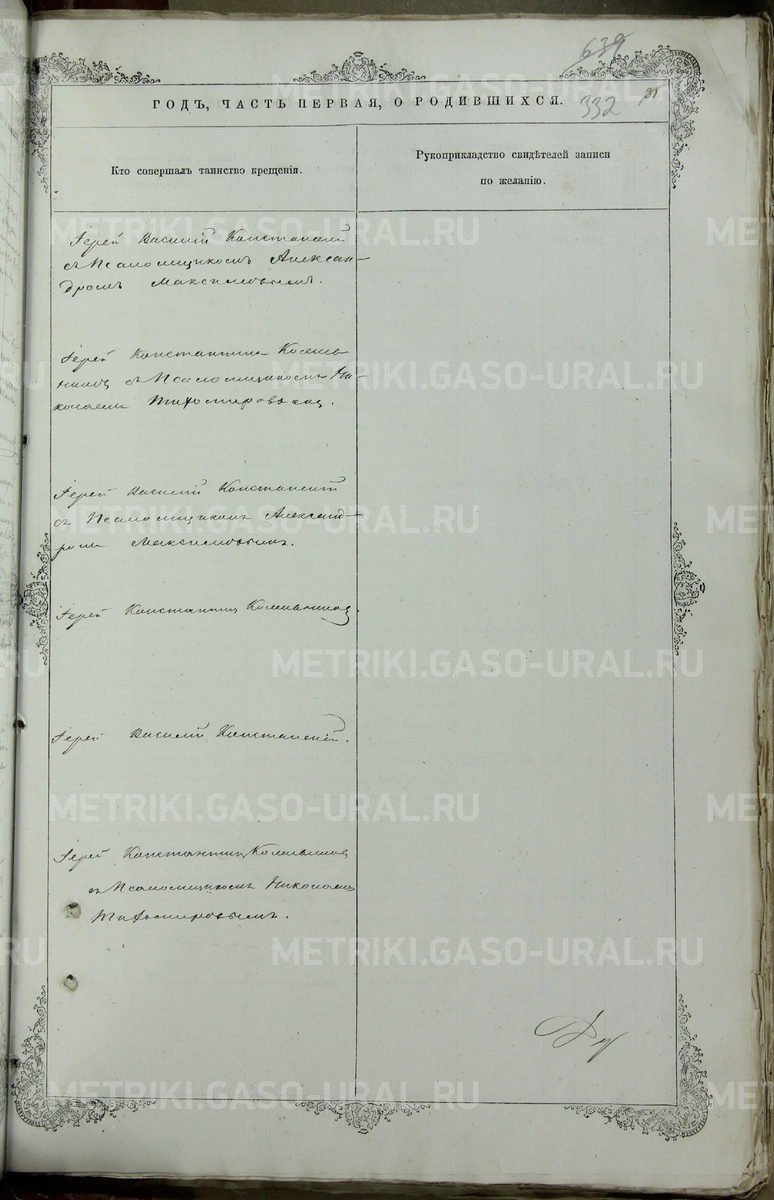 639
332
31
ГОДЪ, ЧАСТЬ ПЕРВАЯ, О РОДИВШИХСЯ.
Кто совершалъ таинство крещенія.
Рукоприкладство свидѣтелей записи
по желанію.
Іерей Василій Констанскій
съ Псаломщикомъ Алексан-
дромъ Максимовымъ.
Іерей Константинъ
съ Псаломщикомъ Ни-
колаемъ Тихомировымъ.
Іерей Василій Констанскій
съ Псаломщикомъ Александ-
ромъ Максимовымъ.
Іерей Константинъ
Іерей Василій Констанскій.
Іерей Константинъ
съ Псаломщикомъ Николаемъ
Тихомировымъ.
METRIKI.GASO-URAL.RU